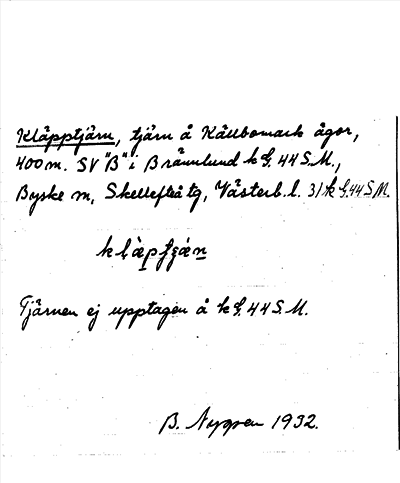 Kläpptjärn, tjärn å Källbomark ägor,
400 m. SV "B" i Brännlund k bl. 44 S.M.,
Byske sn, Skellefteå tg, Västerb. l. 3/k bl. 44 S M.
kläpfjän
Tjärnen ej upptagen å k bl. 44 S. M.
B. Nygren 1932.